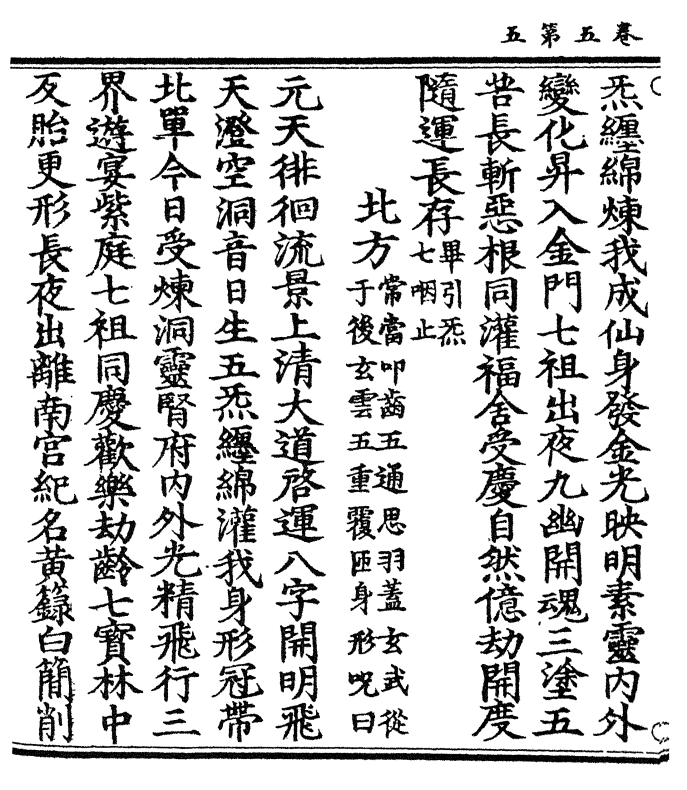 卷五第五
炁纏綿煉我成仙身發金光映明素靈內外
變化昇入金門七祖出夜九幽開魂三塗五
苦長斬惡根同灌福舍受慶自然億劫開度
隨運長存畢引炁
七咽止
北方常當叩齒五通思羽蓋玄武從
于後玄雲五重覆匝身形呪曰
元天徘徊流景上清大道啓運八字開明飛
天澄空洞音日生五炁纏綿灌我身形冠帶
北單今日受煉洞靈腎府內外光精飛行三
界遊宴紫庭七祖同慶歡樂劫齡七寶林中
反胎更形長夜出離南宮紀名黃籙白簡削